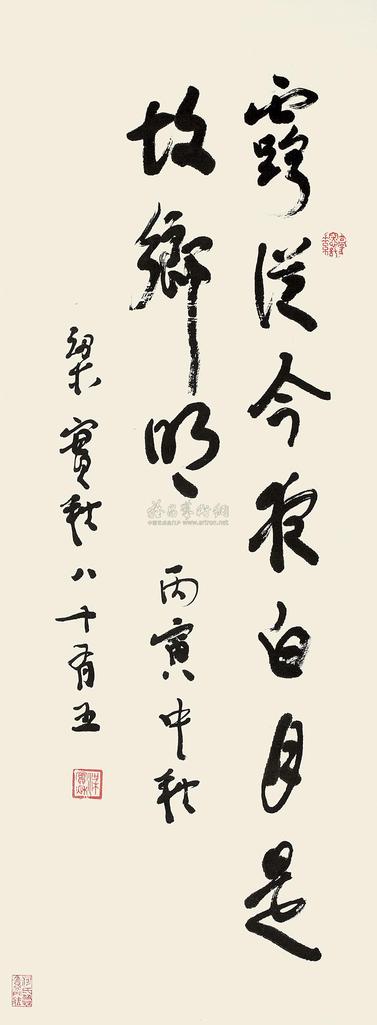 露從今夜白月是
故鄉明
丙寅中秋
梁實秋八十有五
雅昌藝術網
www.artron.net